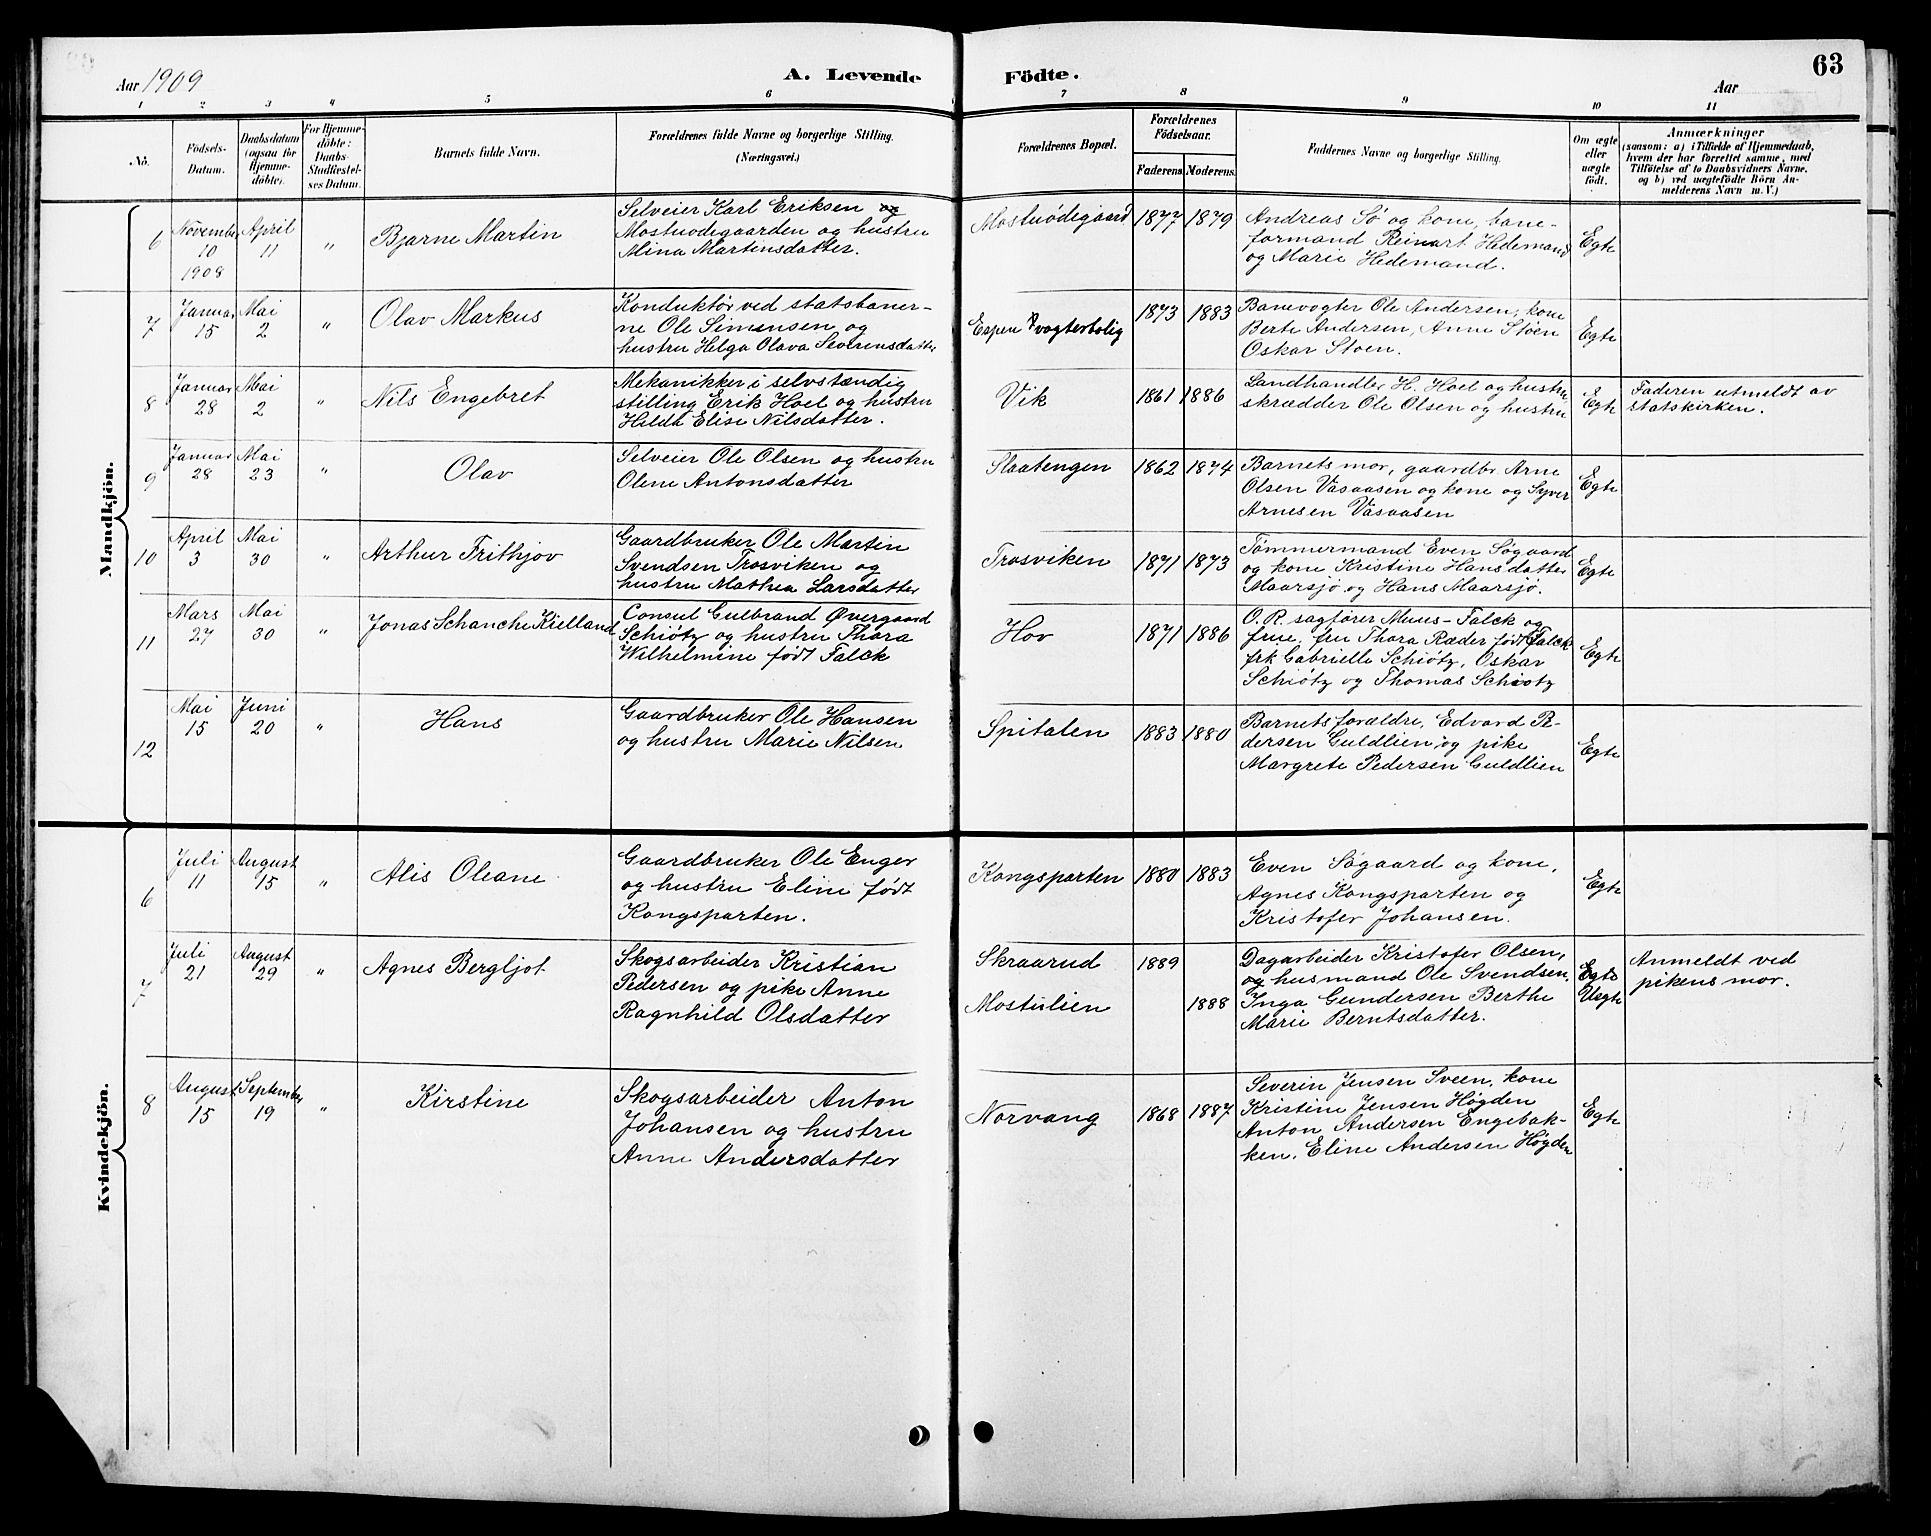 Aar 1909
A. Levende
Födte.
Aar
63
1 2 3 4 5 6 7 8 9 10 11
No.
Födsels-
Datum.
Daabsdatum
(ogsaa for
Hjemme-
döbte).
For Hjemme-
döbte:
Daabs-
Stadfæstel-
ses Datum.
Barnets fulde Navn.
Forældrenes fulde Navne og borgerlige Stilling.
(Næringsvei.)
Forældrenes Bopæl.
Forældrenes
Födselsaar.
Faderens.
Moderens.
Faddernes Navne og borgerlige Stilling.
Om ægte
eller
uægte
födt.
Anmærkninger
(saasom: a) i Tilfælde af Hjemmedaab,
hvem der har forrettet samme, med
Tilföielse af to Daabsvidners Navne,
og b) ved uægtefödte Börn An-
melderens Navn m. V.)
Mandkjön.
6
November
10
1908
April
11
"
Bjarne Martin
Selveier Karl Eriksen og
Mostuødegaarden og hustru
Mina Martinsdatter.
Mostuødegaard
1877
1879
Andreas Sø og kone, bane-
formand Reinart Hedemand
og Marie Hedemand.
Egte
7
Januar
15
Mai
2
"
Olav Markus
Konduktør ved statsbaner-
ne Ole Simensen og
hustru Helga Olava Severensdatter
Espen vogterbolig
1873
1883
Banevogter Ole Andersen, kone
Berte Andersen, Anne Støen
Oskar Støen.
Egte
8
Januar
28
Mai
2
"
Nils Engebret
Mekanikker i selvstændig
stilling Erik Hoel og hustru
Hilda Elise Nilsdatter.
Vik
1861
1886
Landhandler H. Hoel og hustru
skrædder Ole Olsen og hustru
Egte
Faderen utmeldt av
statskirken.
9
Januar
28
Mai
23
"
Olav
Selveier Ole Olsen og hustru
Olene Antonsdatter
Slaatengen
1862
1874
Barnets mor, gaardbr. Arne
Olsen Vasaasen og kone og Syver
Arnesen Vasaasen
Egte
10
April
3
Mai
30
"
Arthur Frithjov
Gaardbruker Ole Martin
Svendsen Trosviken og
hustru Mathea Larsdatter
Trosviken
1871
1873
Tømmermand Even Søgaard
og kone Kristine Hansdatter
Maarsjø og Hans Maarsjø.
Egte
11
Mars
27
Mai
30
"
Jonas Schanche Kielland
Consul Gulbrand Øvergaard
Schiøtz og hustru Thora
Wilhelmine født Falck
Hov
1871
1886
O. R. sagfører Muus-Falck og
frue, fru Thora Ræder født Falck
frk Gabrielle Schiøtz, Oskar
Schiøtz og Thomas Schiøtz
Egte
12
Mai
15
Juni
20
"
Hans
Gaardbruker Ole Hansen
og hustru Marie Nilsen
Spitalen
1883
1880
Barnets forældre, Edvard Pe-
dersen Guldlien og pike
Margrete Pedersen Guldlien
Egte
Kvindekjön.
6
Juli
11
August
15
"
Alis Oleane
Gaardbruker Ole Enger
og hustru Eline født
Kongsparten.
Kongsparten
1880
1883
Even Søgaard og kone,
Agnes Kongsparten og
Kristofer Johansen.
Egte
7
Juli
21
August
29
"
Agnes Bergljot
Skogsarbeider Kristian
Pedersen og pike Anne
Ragnhild Olsdatter
Skraarud
Mostulien
1889
1888
Dagarbeider Kristofer Olsen,
og husmand Ole Svendsen.
Inga Gundersen Berthe
Marie Berntsdatter.
Egte
Uegte
Anmeldt ved
pikens mor.
8
August
15
September
19
"
Kirstine
Skogsarbeider Anton
Johansen og hustru
Anne Andersdatter
Norvang
1868
1887
Severin Jensen Sveen, kone
Kristine Jensen Høgden
Anton Andersen Engebak-
ken. Eline Andersen Høgden
Egte